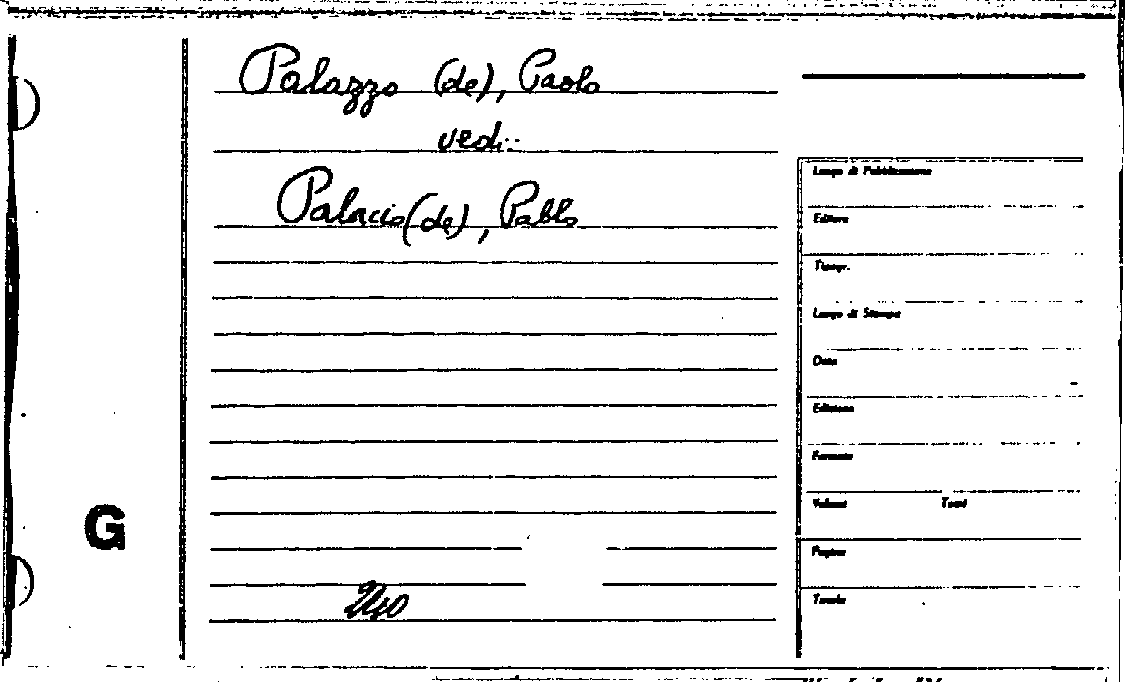 Palazzo (de), Paolo
vedi:
Palacio (de), Pablo
Luogo di Pubblicazione
Editore
Tipogr.
Luogo di Stampa
Data
Edizione
Formato
Volumi Tomi
Pagine
Tavole
G
240